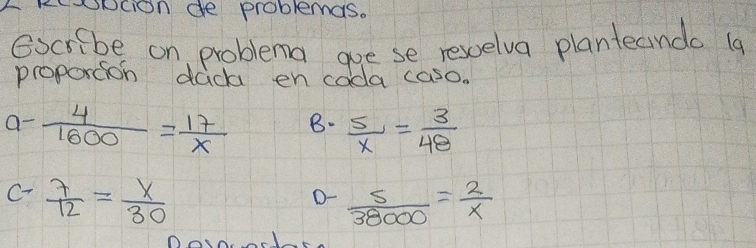 Resolución de problemas.
Escribe un problema que se resuelva planteando la
proporción dada en cada caso.
a- 4/1600 = 17/x B. 5/x = 3/48
C- 7/12 = x/30 D- 5/38000 = 2/x